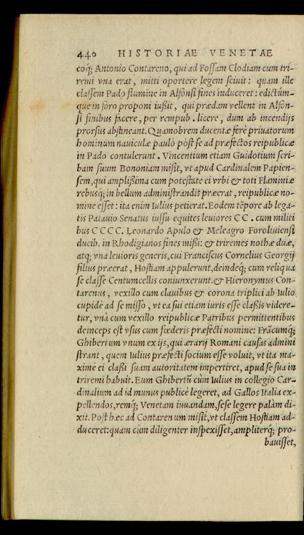 440 HISTORIAE VENETAE
coq́; Antonio Contareno, qui ad Fossam Clodiam cum tri-
remi vna erat, mitti oportere legem sciuit: quam ille
classem Pado flumine in Alfonsi fines induceret: edictúm-
que in foro proponi iussit, qui prædam vellent in Alfon-
si finibus facere, per rempub. licere, dum ab incendijs
prorsus abstineant. Quamobrem ducentæ ferè priuatorum
hominum nauiculæ paulò pòst se ad præfectos reipublicæ
in Pado contulerunt. Vincentium etiam Guidotium scri-
bam suum Bononiam misit, vt apud Cardinalem Papien-
sem, qui amplissima cum potestate ei vrbi & toti Flaminiæ
rebusq́; in bellum administrandis præerat, reipublicæ no-
mine esset: ita enim Iulius petierat. Eodem tépore ab lega-
tis Patauio Senatus iussu equites leuiores CC. cum militi
bus CCCC. Leonardo Apulo & Meleagro Foroliuiensi
ducib. in Rhodigianos fines missi: & triremes nothæ duæ,
atq; vna leuioris generis, cui Franciscus Cornelius Georgij
filius præerat, Hostiam appulerunt, deindeq; cum reliqua
se classe Centumcellis coniunxerunt. & Hieronymus Con-
tarenus, vexillo cum clauibus & corona triplici ab Iulio
cupidè ad se misso, vt ea sui etiam iuris esse classis videre-
tur, vnà cum vexillo reipublicæ Patribus permittentibus
deinceps est vsus cum fœderis præfecti nomine: Frácumq́;
Ghiberium vnum ex ijs, qui ærarij Romani causas admini
strant, quem Iulius præfecti socium esse voluit, vt ita ma-
ximè ei classi suam autoritatem impertiret, apud se sua in
triremi habuit. Eum Ghibertũ cùm Iulius in collegio Car-
dinalium ad id munus publicè legeret, ad Gallos Italia ex-
pellendos, remq́; Venetam iuuandam, sese legere palàm di-
xit. Post hæc ad Contarenum misit, vt classem Hostiam ad-
duceret: quam cùm diligenter inspexisset, ampliterq́; pro-
bauisset,